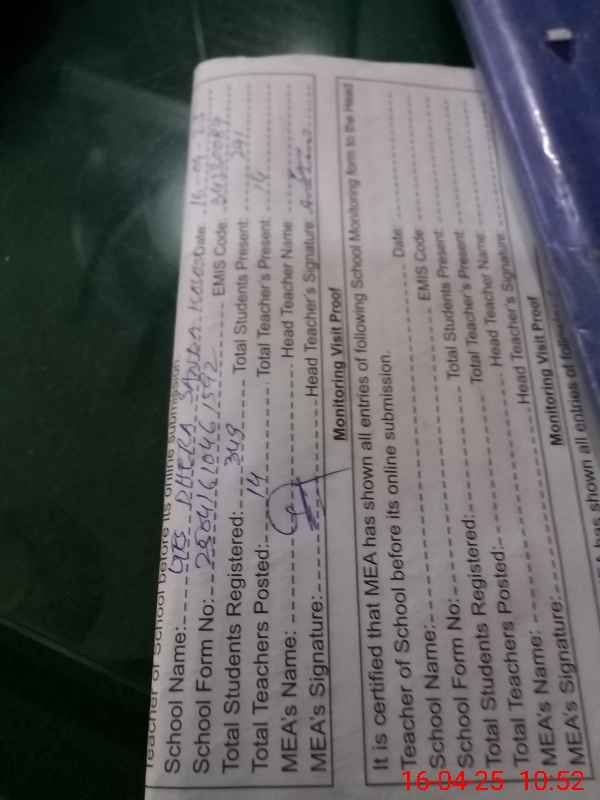 Teacher of School before its online submission.
School Name: GES DHERA Date: 16-04-25
School Form No: EMIS Code:
Total Students Registered: 349 Total Students Present: 241
Total Teachers Posted: 14 Total Teacher's Present: 14
MEA's Name: Head Teacher Name:
MEA's Signature: Head Teacher's Signature
Monitoring Visit Proof
It is certified that MEA has shown all entries of following School Monitoring form to the Head
Teacher of School before its online submission.
Date:
School Name: EMIS Code
School Form No: Total Students Present:
Total Students Registered: Total Teacher's Present:
Total Teachers Posted: Head Teacher Name:
MEA's Name: Head Teacher's Signature
MEA's Signature:
Monitoring Visit Proof
has shown all entries of
16-04-25 10:52